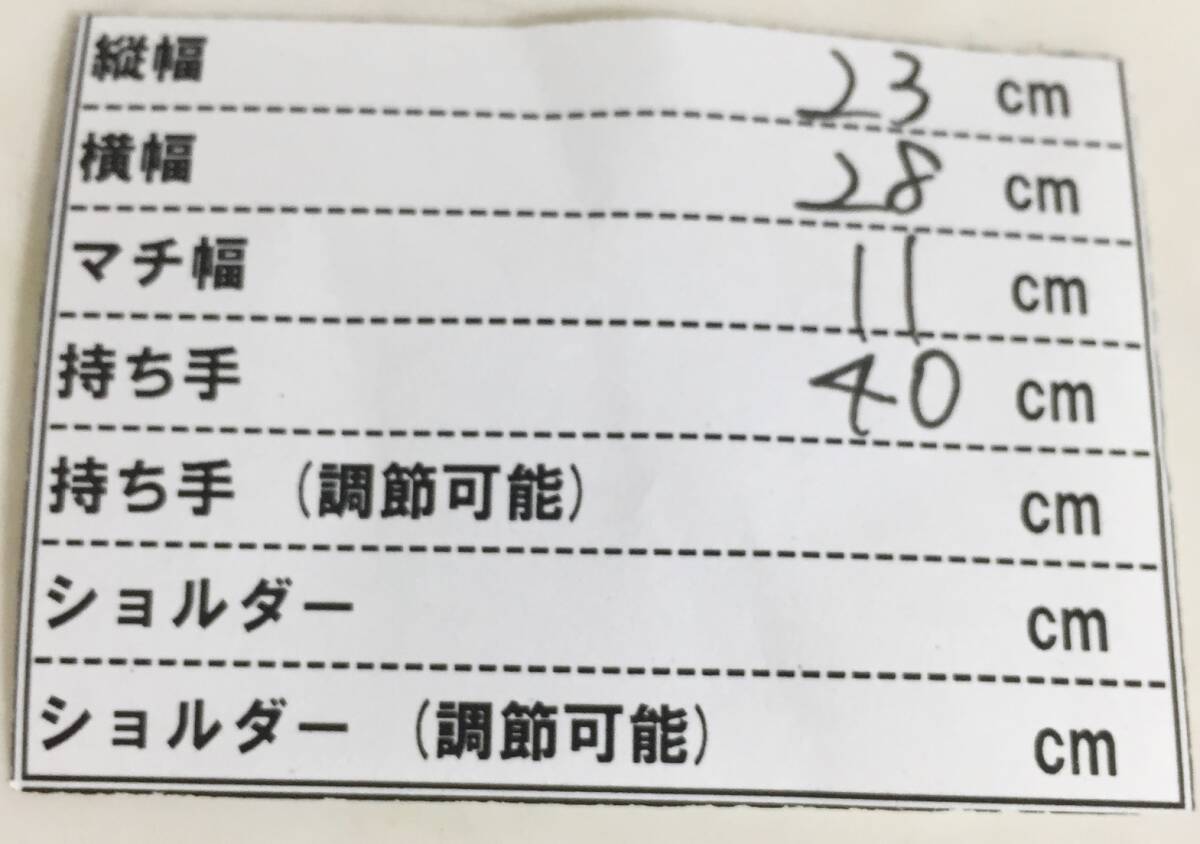 縦幅 23 cm
横幅 28 cm
マチ幅 11 cm
持ち手 40 cm
持ち手 (調節可能) cm
ショルダー cm
ショルダー (調節可能) cm